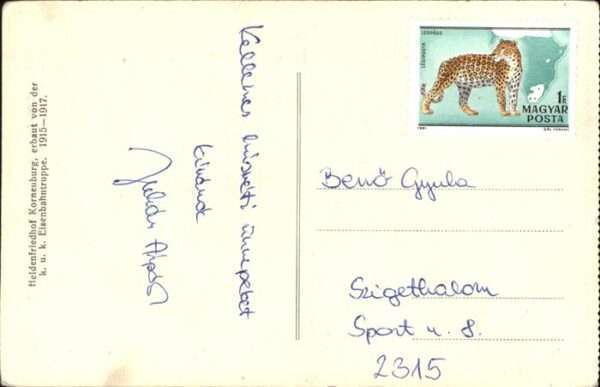 Heldenfriedhof Korneuburg, erbaut von der
k. u. k. Eisenbahntruppe. 1915—1917.
Kellemes húsvéti ünnepeket
kívánok
Juhár Árpád
LEOPÁRD
1Ft
MAGYAR
POSTA
1981
Benő Gyula
Szigethalom
Sport u. 8.
2315